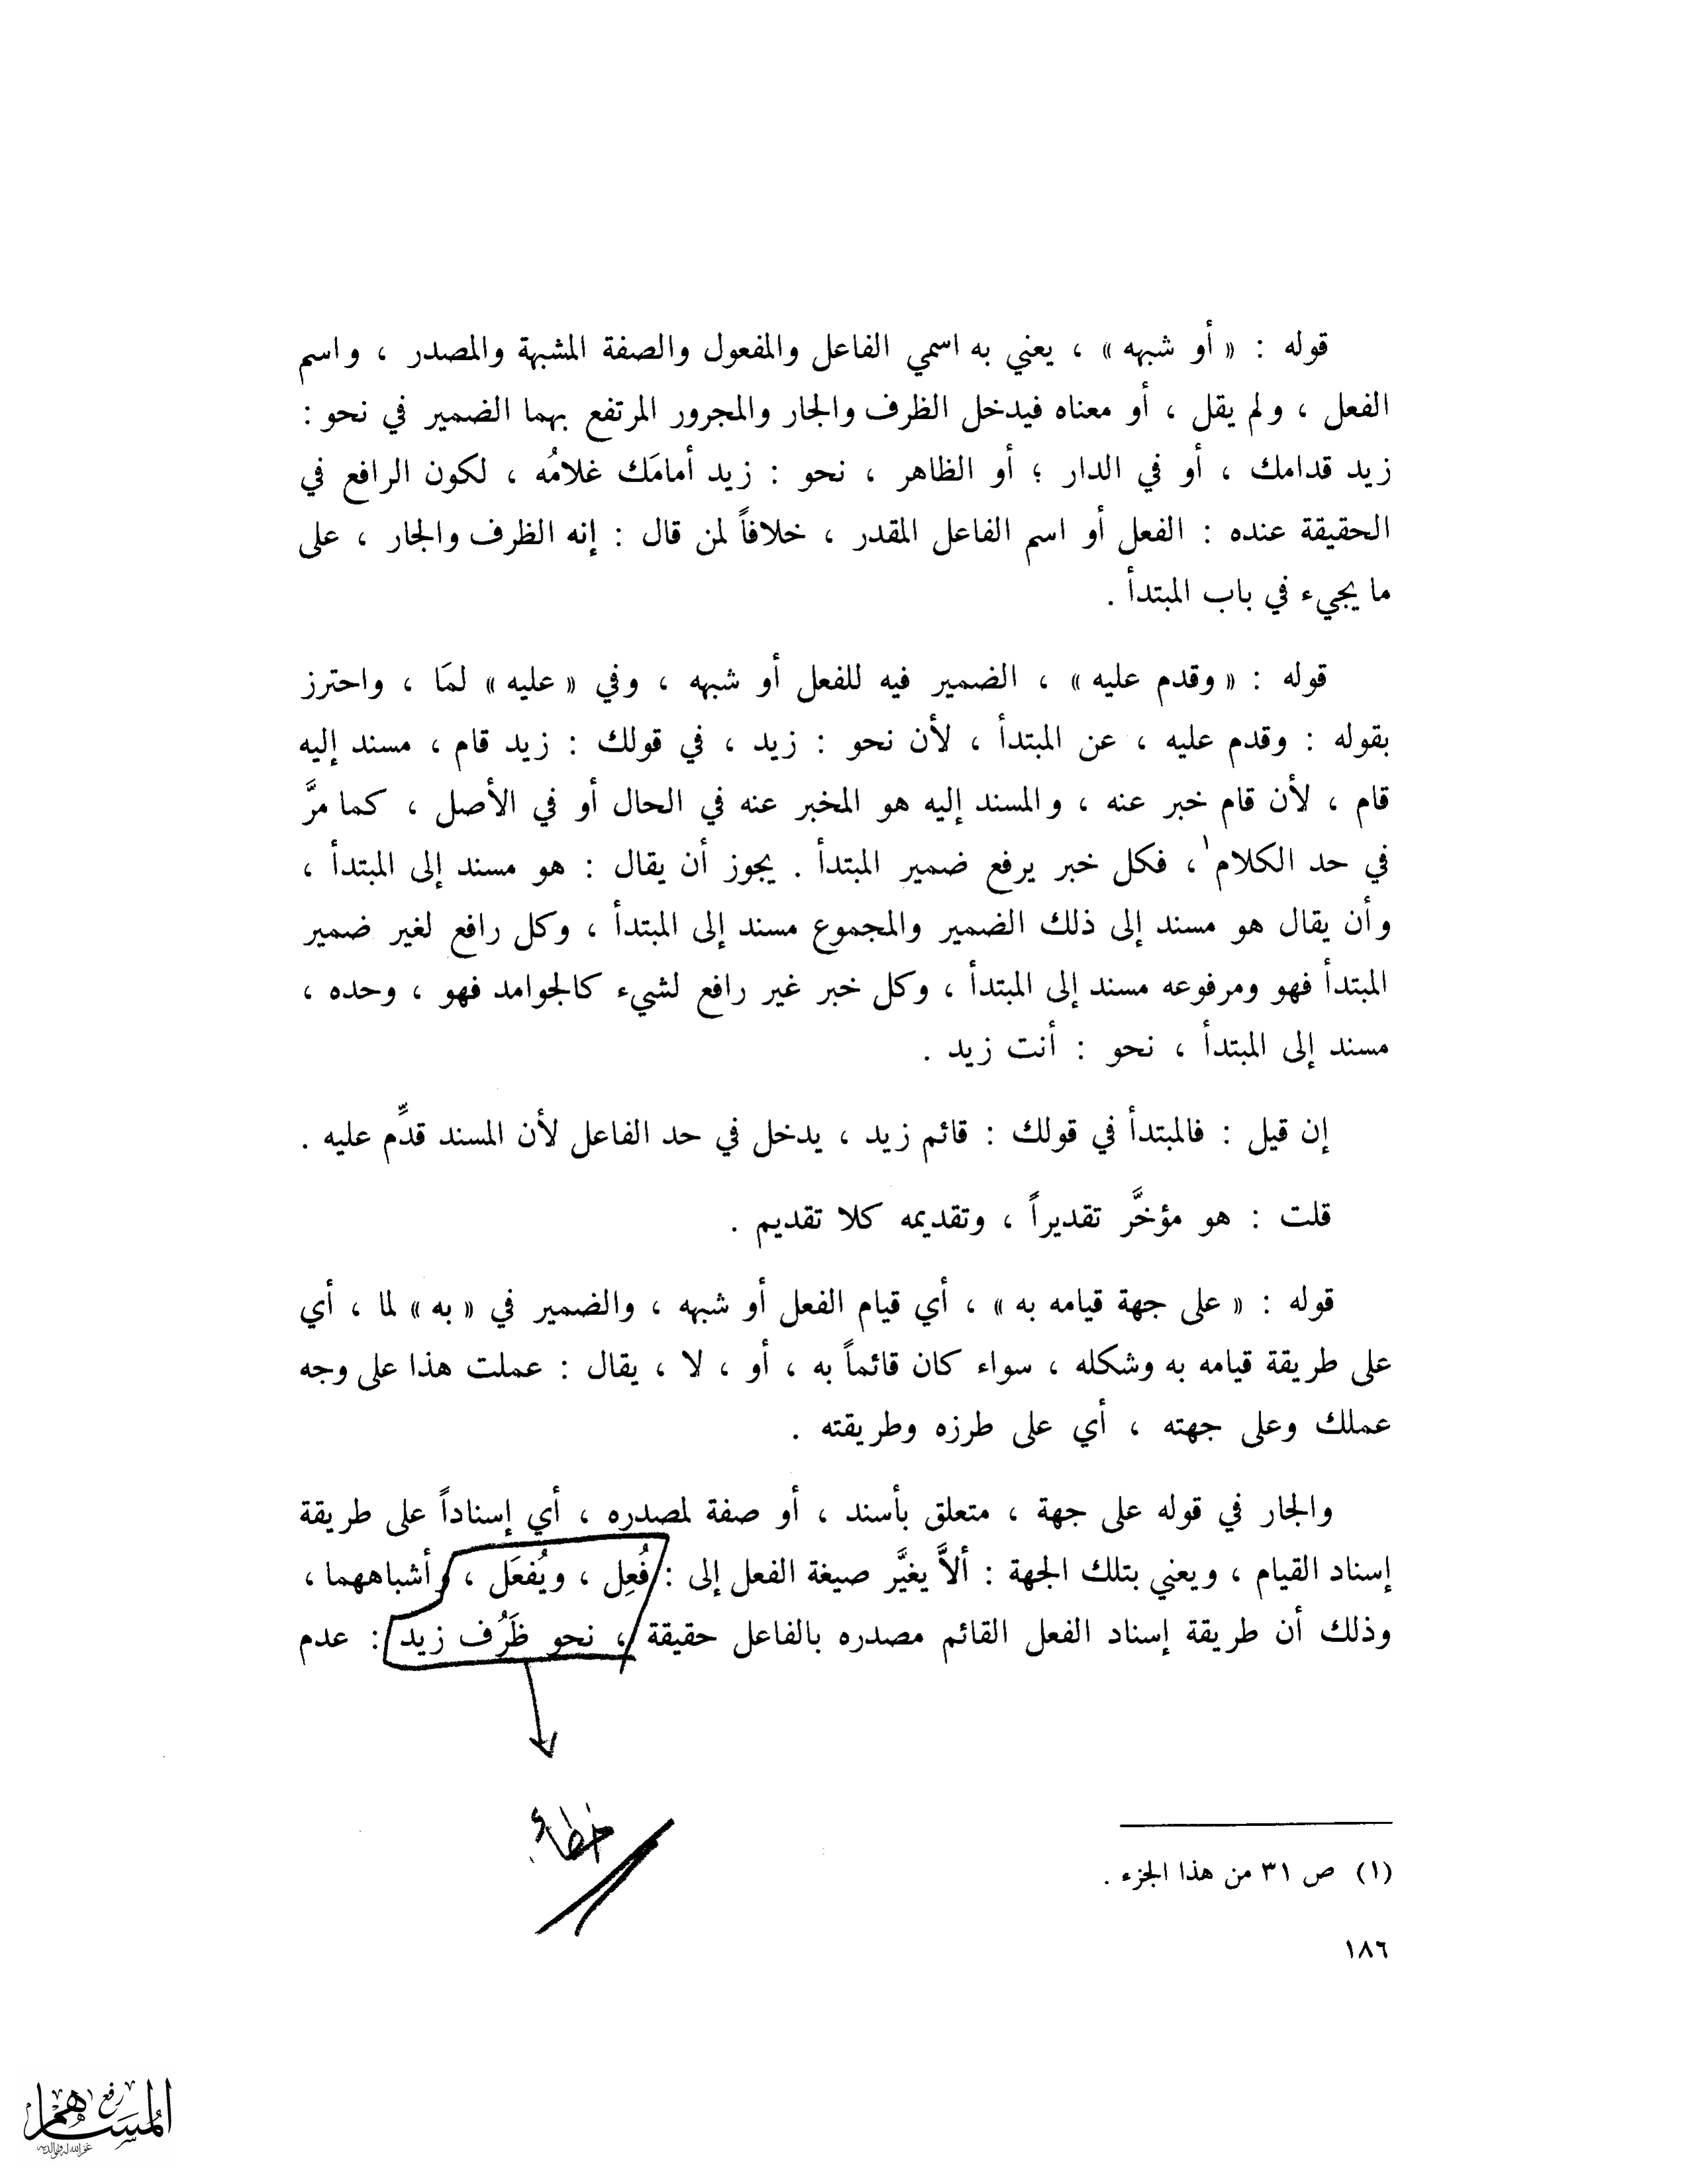 قوله : « أو شبهه » ، يعني به اسمي الفاعل والمفعول والصفة المشبهة والمصدر ، واسم
الفعل ، ولم يقل ، أو معناه فيدخل الظرف والجار والمجرور المرتفع بهما الضمير في نحو :
زيد قدامك ، أو في الدار ؛ أو الظاهر ، نحو : زيد أمامَك غلامُه ، لكون الرافع في
الحقيقة عنده : الفعل أو اسم الفاعل المقدر ، خلافاً لمن قال : إنه الظرف والجار ، على
ما يجيء في باب المبتدأ .
قوله : « وقدم عليه » ، الضمير فيه للفعل أو شبهه ، وفي « عليه » لمَا ، واحترز
بقوله : وقدم عليه ، عن المبتدأ ، لأن نحو : زيد ، في قولك : زيد قام ، مسند إليه
قام ، لأن قام خبر عنه ، والمسند إليه هو المخبر عنه في الحال أو في الأصل ، كما مرَّ
في حد الكلام ١ ، فكل خبر يرفع ضمير المبتدأ . يجوز أن يقال : هو مسند إلى المبتدأ ،
وأن يقال هو مسند إلى ذلك الضمير والمجموع مسند إلى المبتدأ ، وكل رافع لغير ضمير
المبتدأ فهو ومرفوعه مسند إلى المبتدأ ، وكل خبر غير رافع لشيء كالجوامد فهو ، وحده ،
مسند إلى المبتدأ ، نحو : أنت زيد .
إن قيل : فالمبتدأ في قولك : قائم زيد ، يدخل في حد الفاعل لأن المسند قدِّم عليه .
قلت : هو مؤخَّر تقديراً ، وتقديمه كلا تقديم .
قوله : « على جهة قيامه به » ، أي قيام الفعل أو شبهه ، والضمير في « به » لما ، أي
على طريقة قيامه به وشكله ، سواء كان قائماً به ، أو ، لا ، يقال : عملت هذا على وجه
عملك وعلى جهته ، أي على طرزه وطريقته .
والجار في قوله على جهة ، متعلق بأسند ، أو صفة لمصدره ، أي إسناداً على طريقة
إسناد القيام ، ويعني بتلك الجهة : ألاَّ يغيَّر صيغة الفعل إلى : فُعِل ، ويُفعَل ، وأشباههما ،
وذلك أن طريقة إسناد الفعل القائم مصدره بالفاعل حقيقة ، نحو ظَرُف زيد : عدم
خطأ
(١) ص ٣١ من هذا الجزء .
١٨٦
رفع
المساهم
غفر الله له ولوالديه